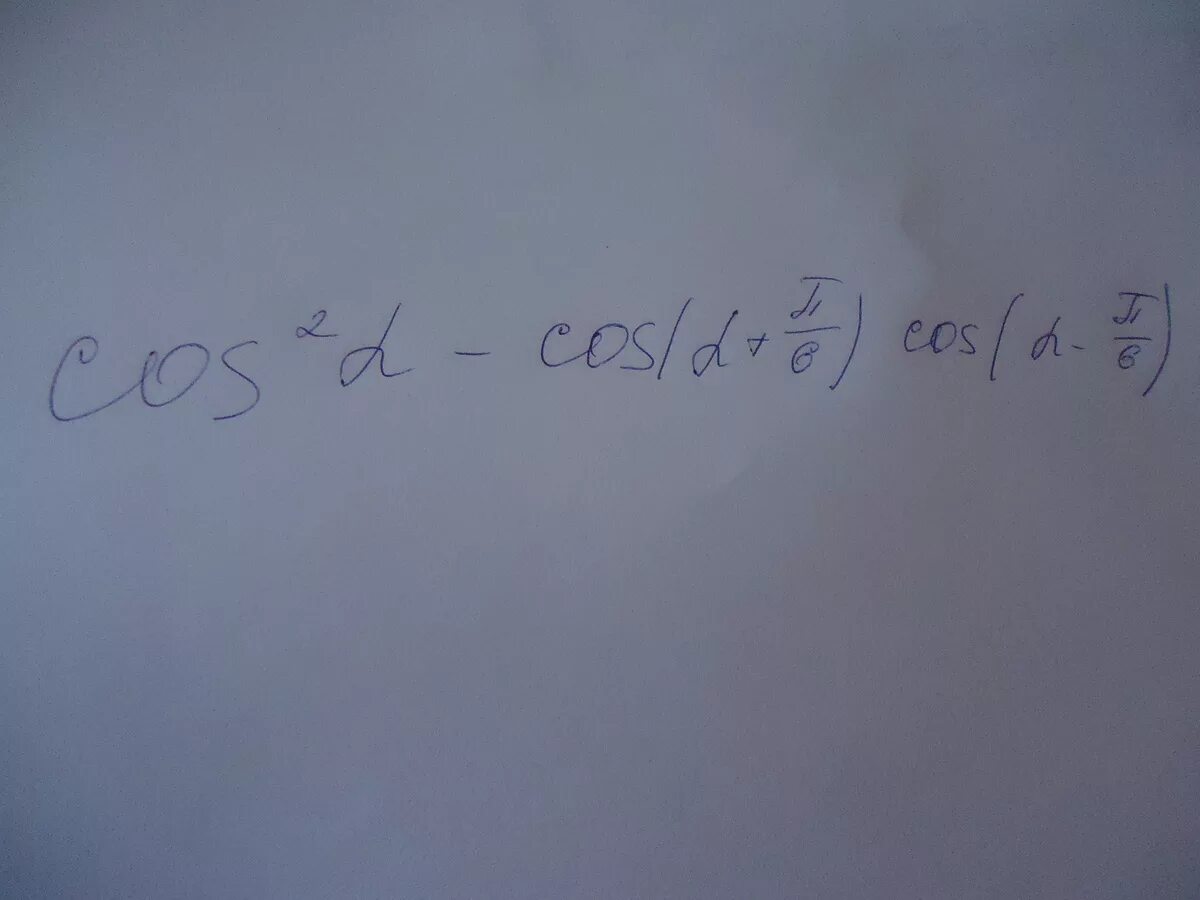 cos²α - cos(α + π/6) cos(α - π/6)